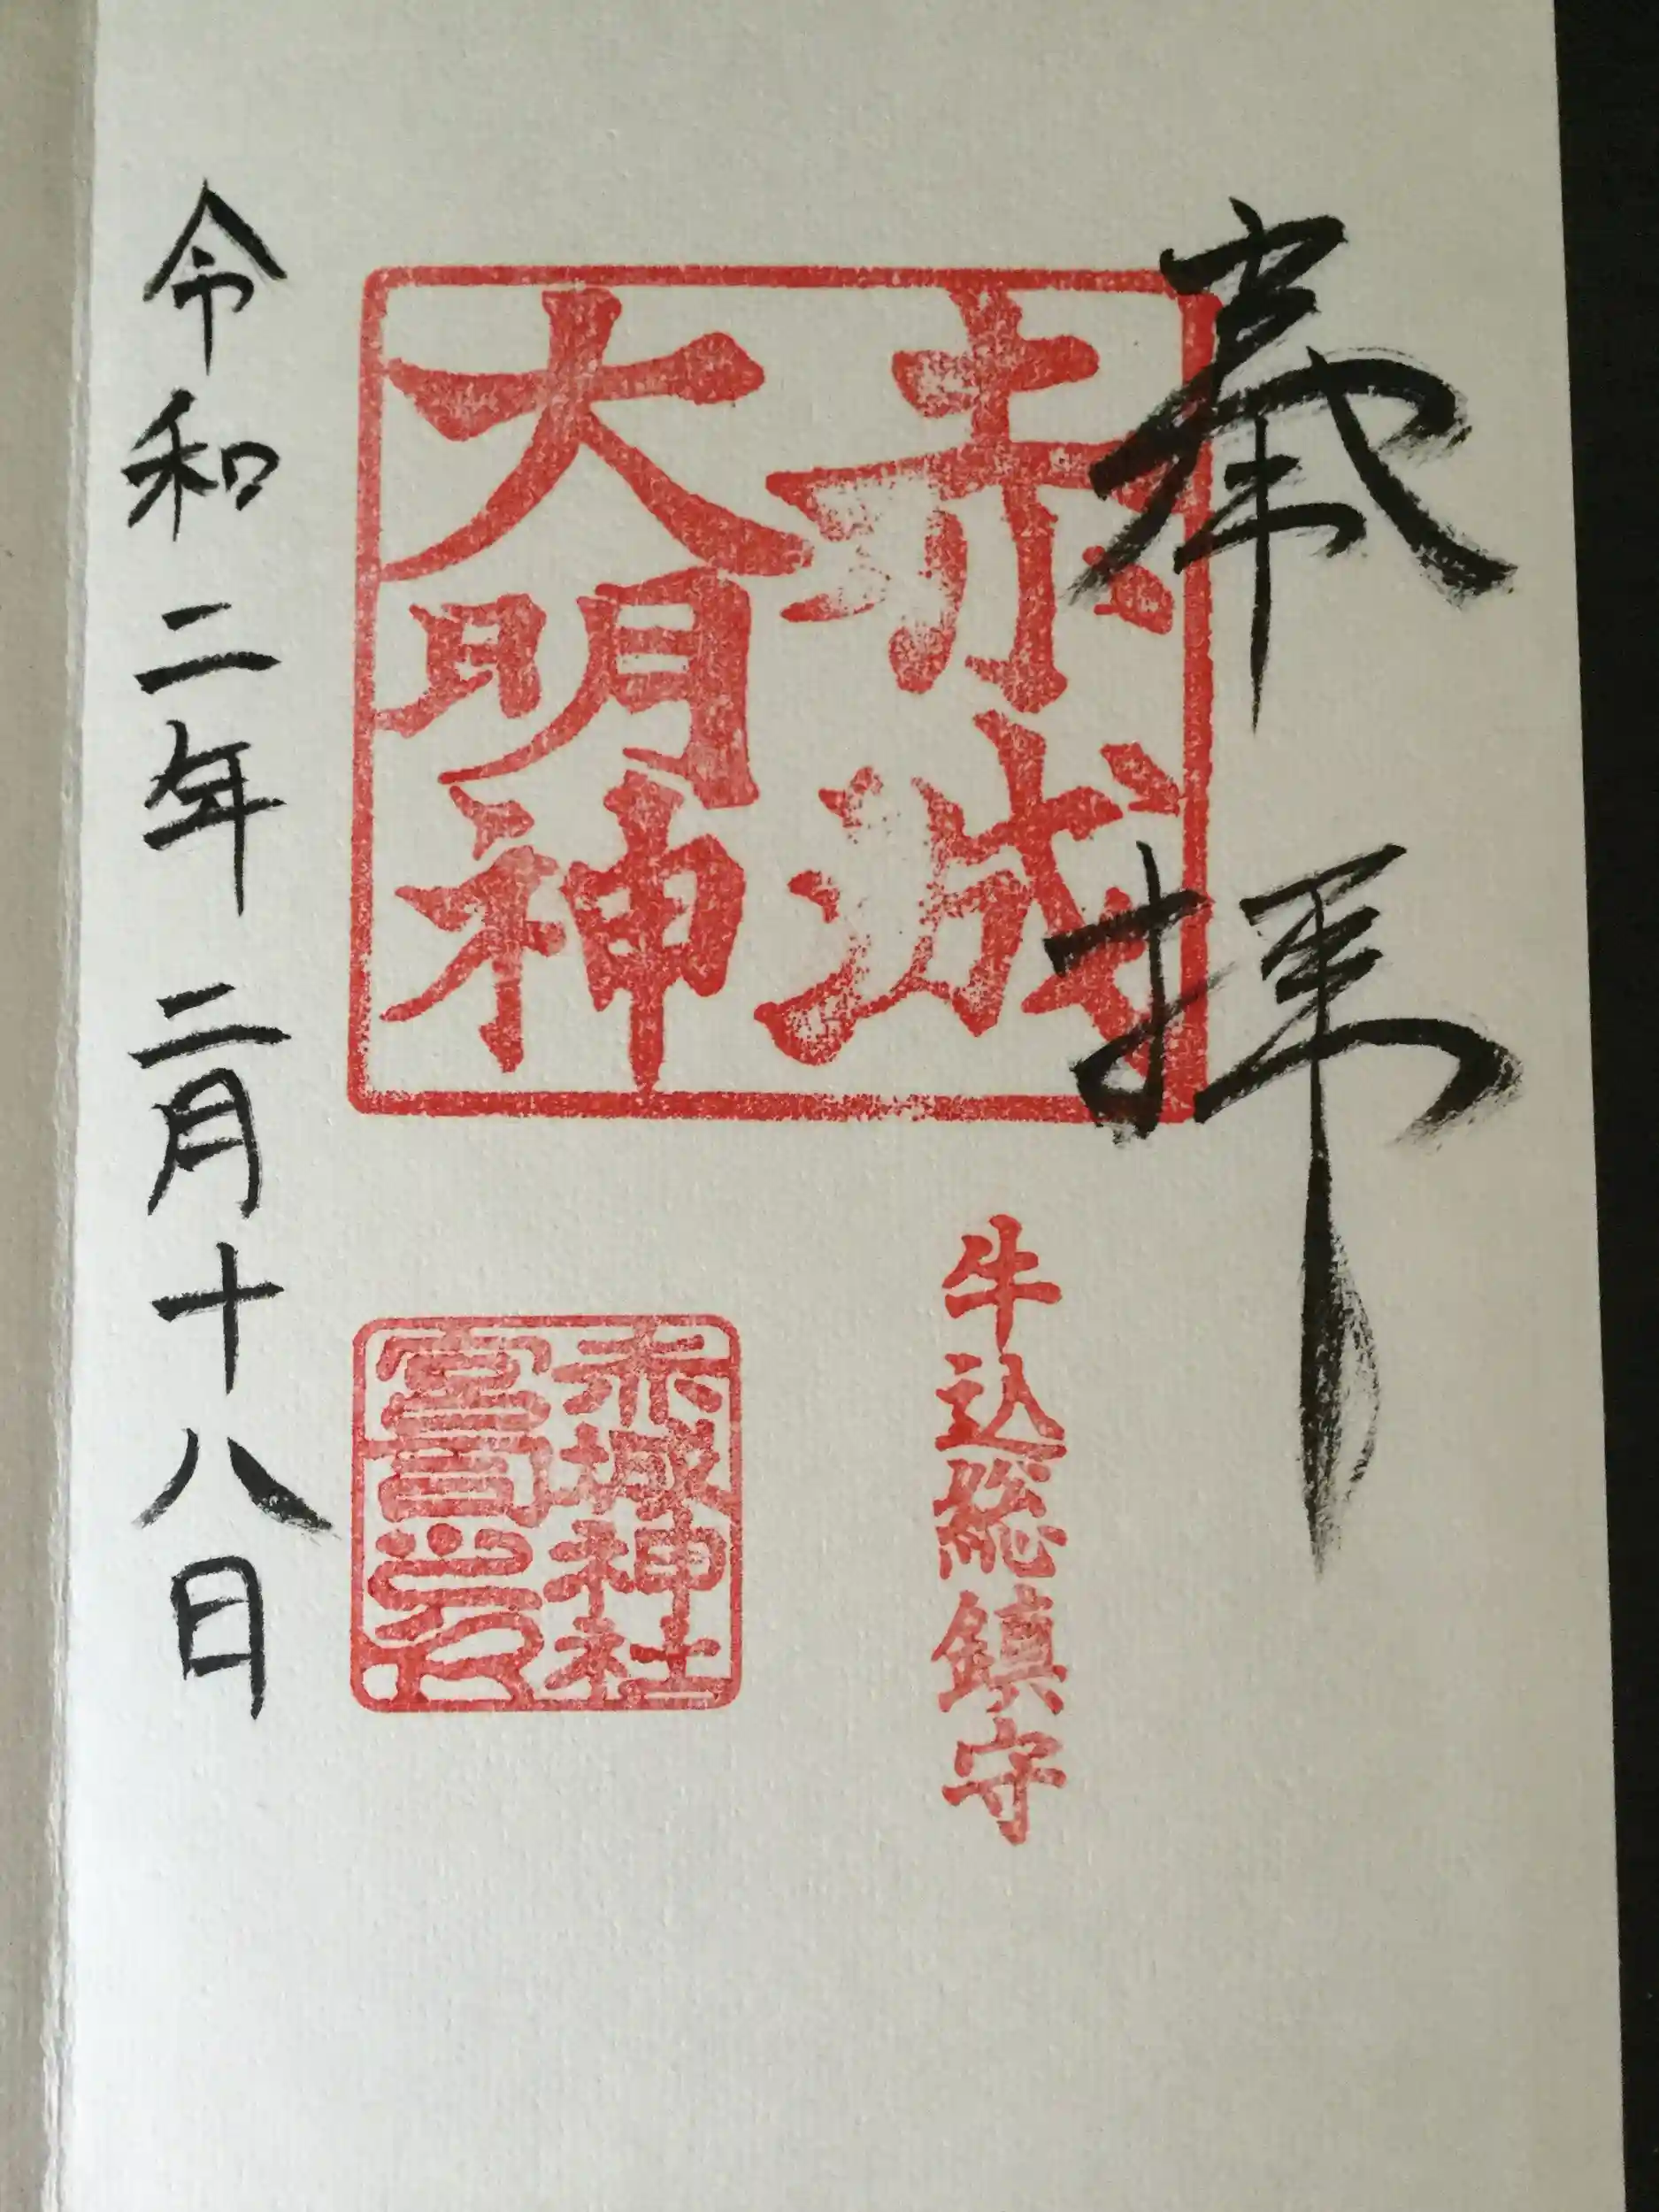 奉拝
赤城
大明神
牛込総鎮守
赤城神社
宮司之印
令和二年三月十八日